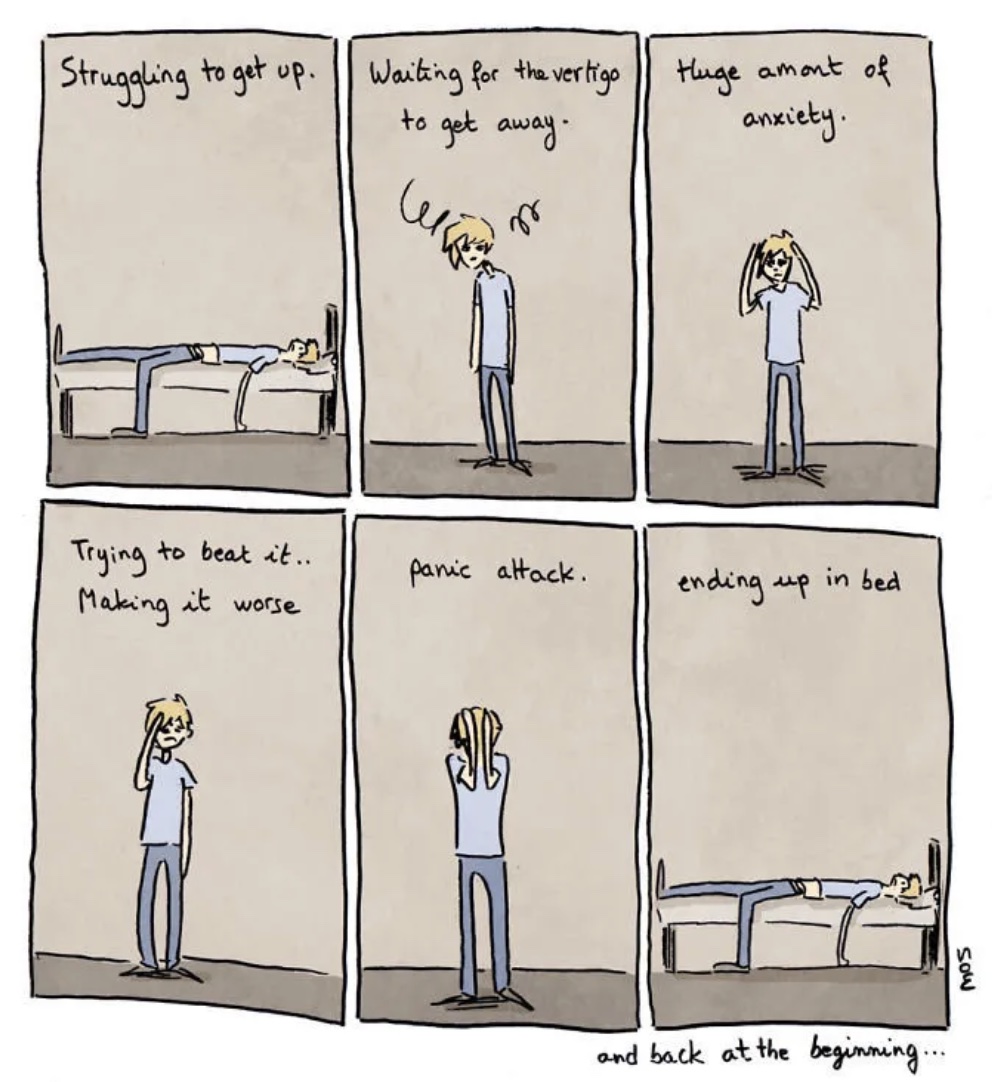 Struggling to get up.
Waiting for the vertigo
to get away.
Huge amont of
anxiety.
Trying to beat it..
Making it worse
panic attack.
ending up in bed
SOW
and back at the beginning...